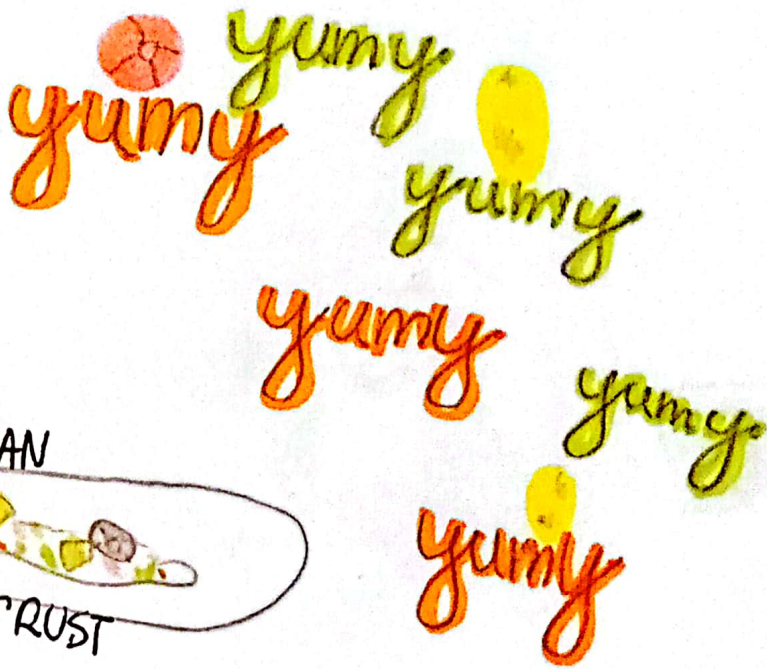 yumy
yumy
yumy
yumy
yumy
yumy
AN
RUST